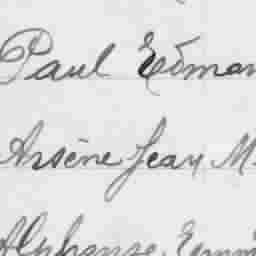 Paul Edmon
Arsène Jean M
Alphonse Emm